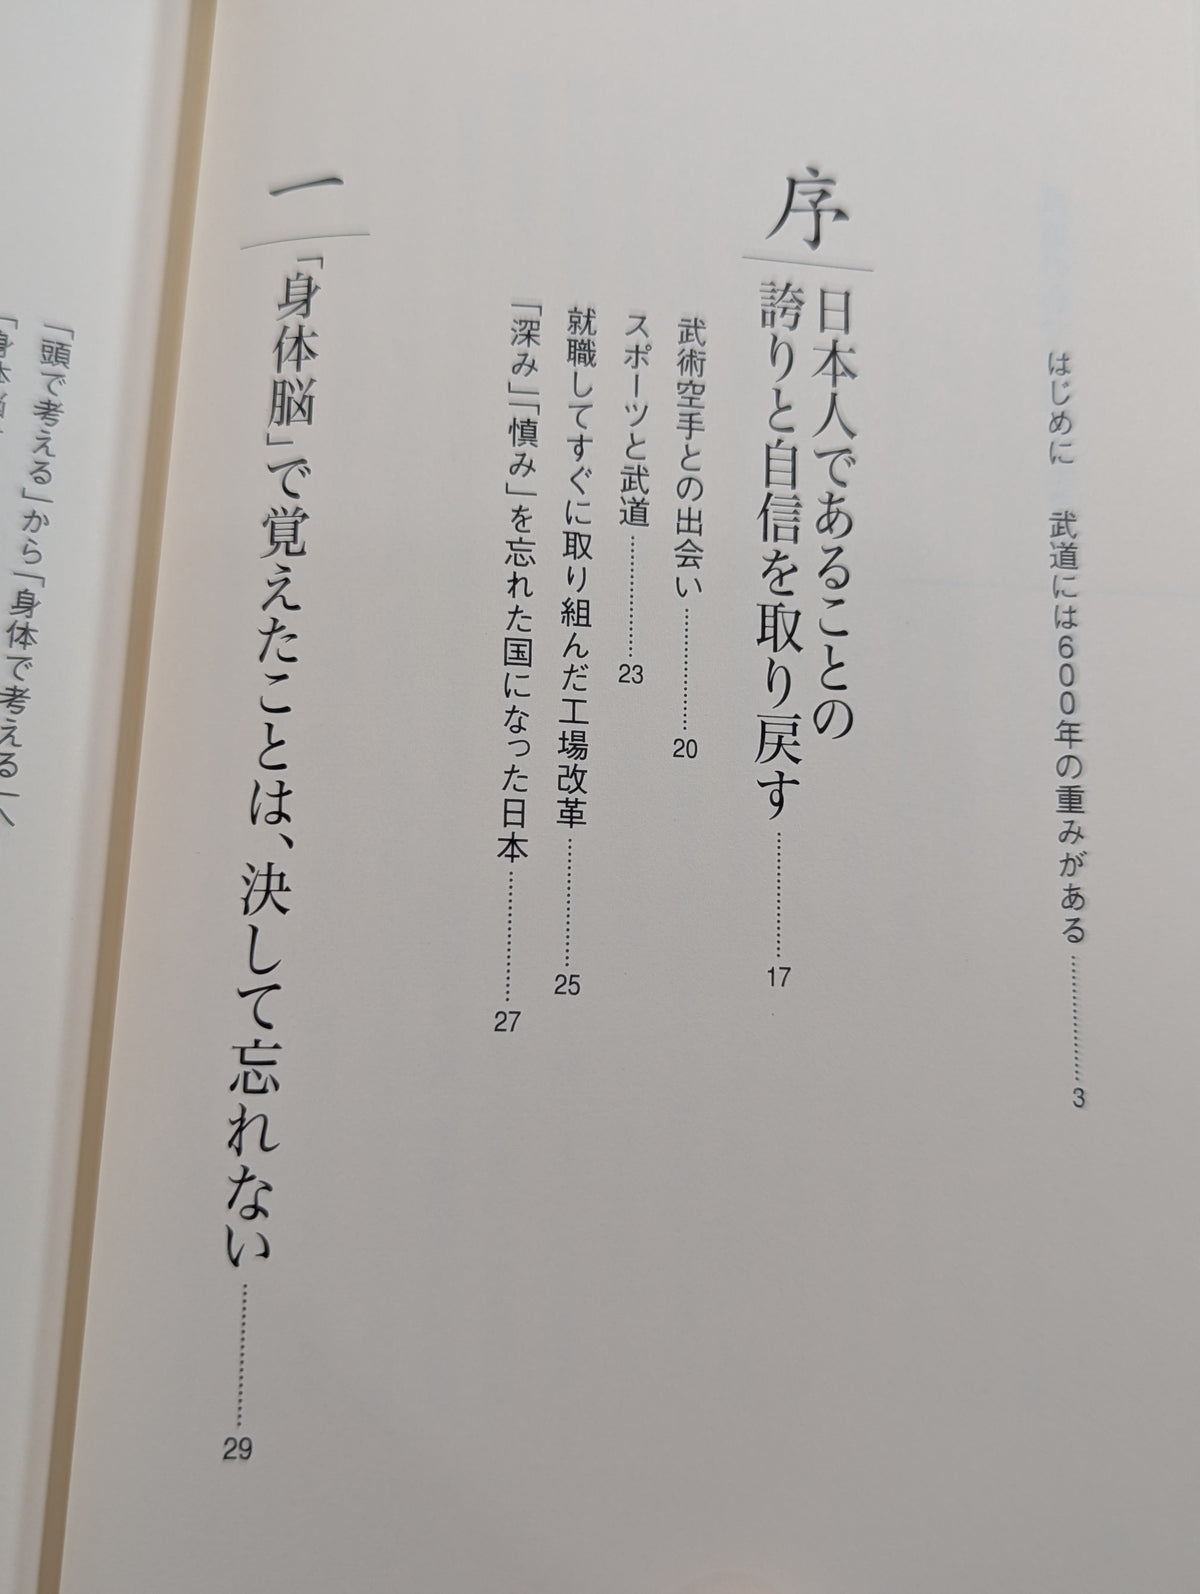 はじめに　武道には600年の重みがある…………3
序
日本人であることの
誇りと自信を取り戻す…………17
武術空手との出会い…………20
スポーツと武道…………23
就職してすぐに取り組んだ工場改革…………25
「深み」「慎み」を忘れた国になった日本…………27
一
「身体脳」で覚えたことは、決して忘れない…………29
「頭で考える」から「身体で考える」へ
「身体脳